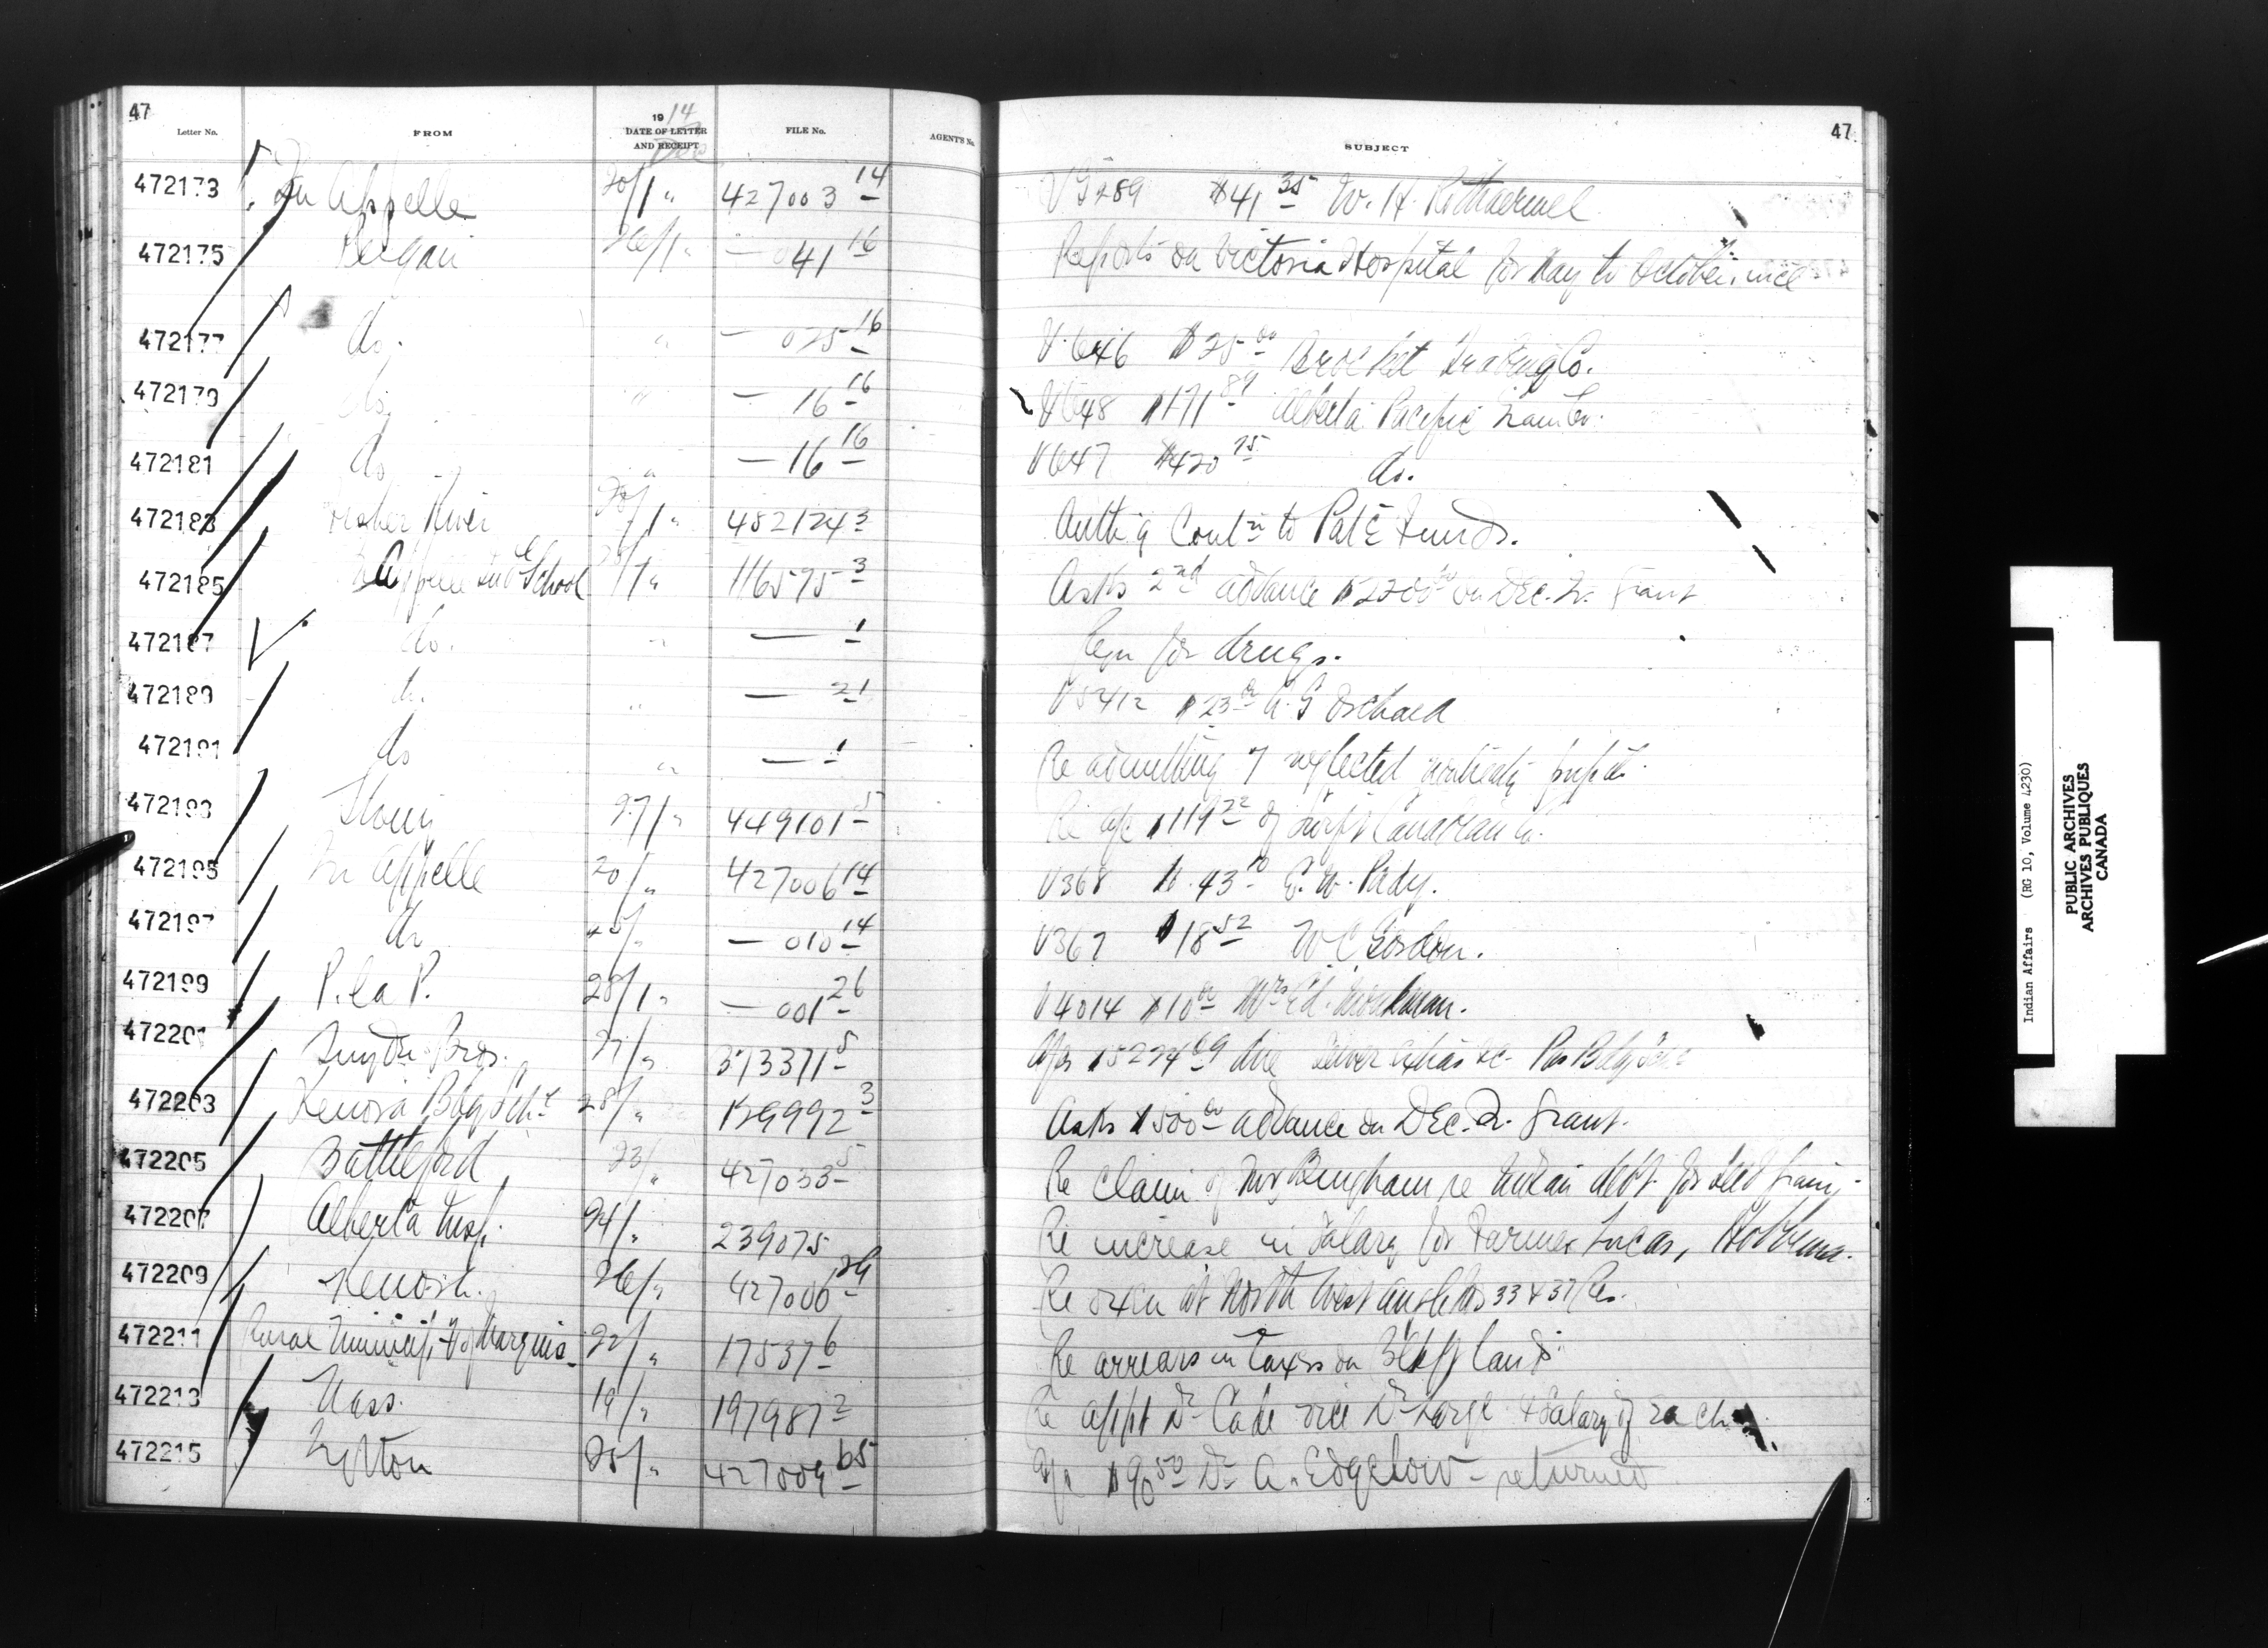 47
Letter No. FROM 1914 DATE OF LETTER AND RECEIPT FILE No. AGENT'S No. SUBJECT 47
472173 Qu Appelle 20/1 " 427003 14 V G289 $41 35 W. H. Rothaermel
472175 Peigan 26/1 " — 041 16 Reports on Victoria Hospital for May to October, incl
472177 do. " — 025 16 V.646 $25 00 Brocket Trading Co.
472179 do. " — 16 16 V648 $171 89 Alberta Pacific Grain Co.
472181 do " — 16 16 V647 $420 75 do.
472183 Fisher River /1 " 482124 3 Auth'g Cont'n to Funds.
472185 Qu Appelle Ind School /1 " 116575 3 Asks 2nd advance $2200 00 on Dec. Qr. Grant
472187 do. " — 1 Reqn for drugs.
472189 do. " — 21 V5412 $23 00 A. G Orchard
472191 do " — 1 — Re admitting 7 neglected pupils.
472193 Stony 27/ " 449101 5 Re a/c $119 22 of Canadian Co.
472195 Qu Appelle 20/ " 427006 14 V368 $43 10 E. W. Pady.
472197 do 25/ " — 010 14 V367 $18 52 W C Gordon.
472199 P. la P. 28/1 " — 001 26 V4014 $10 00 Mrs Ed. Workman.
472201 Snyder Bros. 27/ " 373371 5 a/c $5224 69 due
472203 Kenora Bdg Schl 28/ " 129992 3 Asks $500 00 advance on Dec. Qr. Grant.
472205 Battleford 23/ " 427033 5 Re claim of Mr Bingham re Indian debt for seed grain
472207 Alberta Insp. 24/ " 239075 Re increase in salary for Farmer Lucas, Hobbema.
472209 Kenora. 26/ " 427006 29 Re oxen at North West Angle Nos 33 & 37 Res.
472211 Rural Municip'ty of Marquis 22/ " 17537 6 Re arrears in taxes on lands
472213 Nass. 19/ " 197987 2 Re appt Dr Cade vice Dr Large & Salary of each.
472215 Lytton 25/ " 427009 65 a/c $90 50 Dr A. Edgelow - returned
Indian Affairs (RG 10, Volume 4230)
PUBLIC ARCHIVES
ARCHIVES PUBLIQUES
CANADA